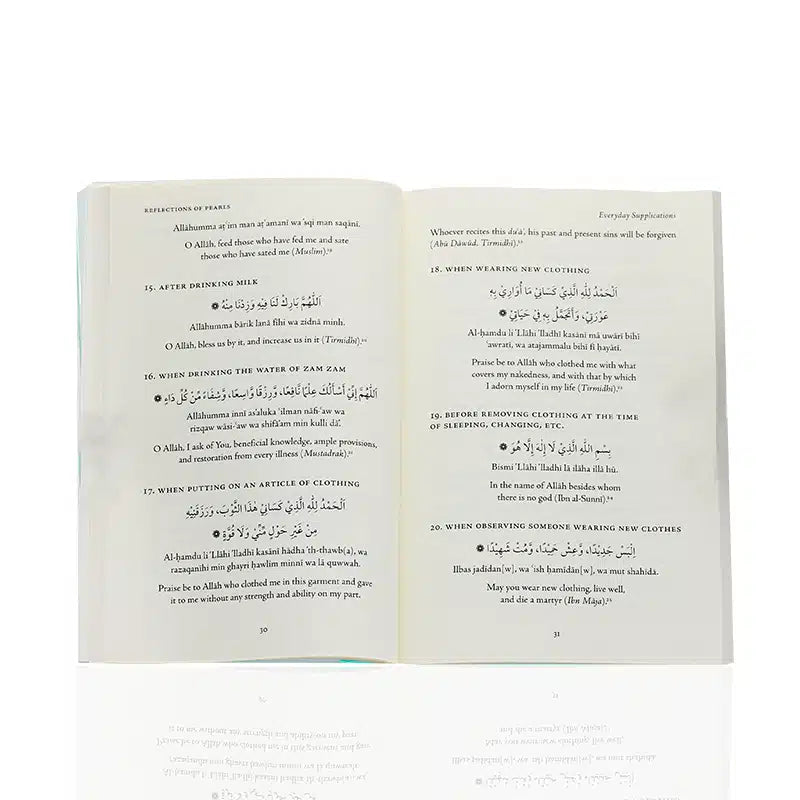 REFLECTIONS OF PEARLS
Allāhumma aṭ'im man aṭ'amanī wa 'sqi man saqānī.
O Allāh, feed those who have fed me and sate
those who have sated me (Muslim).
15. AFTER DRINKING MILK
اَللّٰهُمَّ بَارِكْ لَنَا فِيْهِ وَزِدْنَا مِنْهُ
Allāhumma bārik lanā fīhi wa zidnā minh.
O Allāh, bless us by it, and increase us in it (Tirmidhī).
16. WHEN DRINKING THE WATER OF ZAM ZAM
اَللّٰهُمَّ إِنِّيْ أَسْأَلُكَ عِلْمًا نَافِعًا، وَرِزْقًا وَاسِعًا، وَشِفَاءً مِّنْ كُلِّ دَاءٍ
Allāhumma innī as'aluka 'ilman nāfi'aw wa
rizqaw wāsi'aw wa shifā'am min kulli dā'.
O Allāh, I ask of You, beneficial knowledge, ample provisions,
and restoration from every illness (Mustadrak).
17. WHEN PUTTING ON AN ARTICLE OF CLOTHING
اَلْحَمْدُ لِلّٰهِ الَّذِيْ كَسَانِيْ هٰذَا الثَّوْبَ، وَرَزَقَنِيْهِ
مِنْ غَيْرِ حَوْلٍ مِّنِّيْ وَلَا قُوَّةٍ
Al-ḥamdu li 'Llāhi 'lladhī kasānī hādha 'th-thawb(a), wa
razaqanīhi min ghayri ḥawlim minnī wa lā quwwah.
Praise be to Allāh who clothed me in this garment and gave
it to me without any strength and ability on my part.
30
Everyday Supplications
Whoever recites this du'ā', his past and present sins will be forgiven
(Abū Dāwūd, Tirmidhī).
18. WHEN WEARING NEW CLOTHING
اَلْحَمْدُ لِلّٰهِ الَّذِيْ كَسَانِيْ مَا أُوَارِيْ بِهِ
عَوْرَتِيْ، وَأَتَجَمَّلُ بِهِ فِيْ حَيَاتِيْ
Al-ḥamdu li 'Llāhi 'lladhī kasānī mā uwārī bihī
'awratī, wa atajammalu bihī fī ḥayātī.
Praise be to Allāh who clothed me with what
covers my nakedness, and with that by which
I adorn myself in my life (Tirmidhī).
19. BEFORE REMOVING CLOTHING AT THE TIME
OF SLEEPING, CHANGING, ETC.
بِسْمِ اللّٰهِ الَّذِيْ لَا إِلٰهَ إِلَّا هُوَ
Bismi 'Llāhi 'lladhī lā ilāha illā hū.
In the name of Allāh besides whom
there is no god (Ibn al-Sunnī).
20. WHEN OBSERVING SOMEONE WEARING NEW CLOTHES
اِلْبَسْ جَدِيْدًا، وَعِشْ حَمِيْدًا، وَمُتْ شَهِيْدًا
Ilbas jadīdan[w], wa 'ish ḥamīdān[w], wa mut shahīdā.
May you wear new clothing, live well,
and die a martyr (Ibn Māja).
31